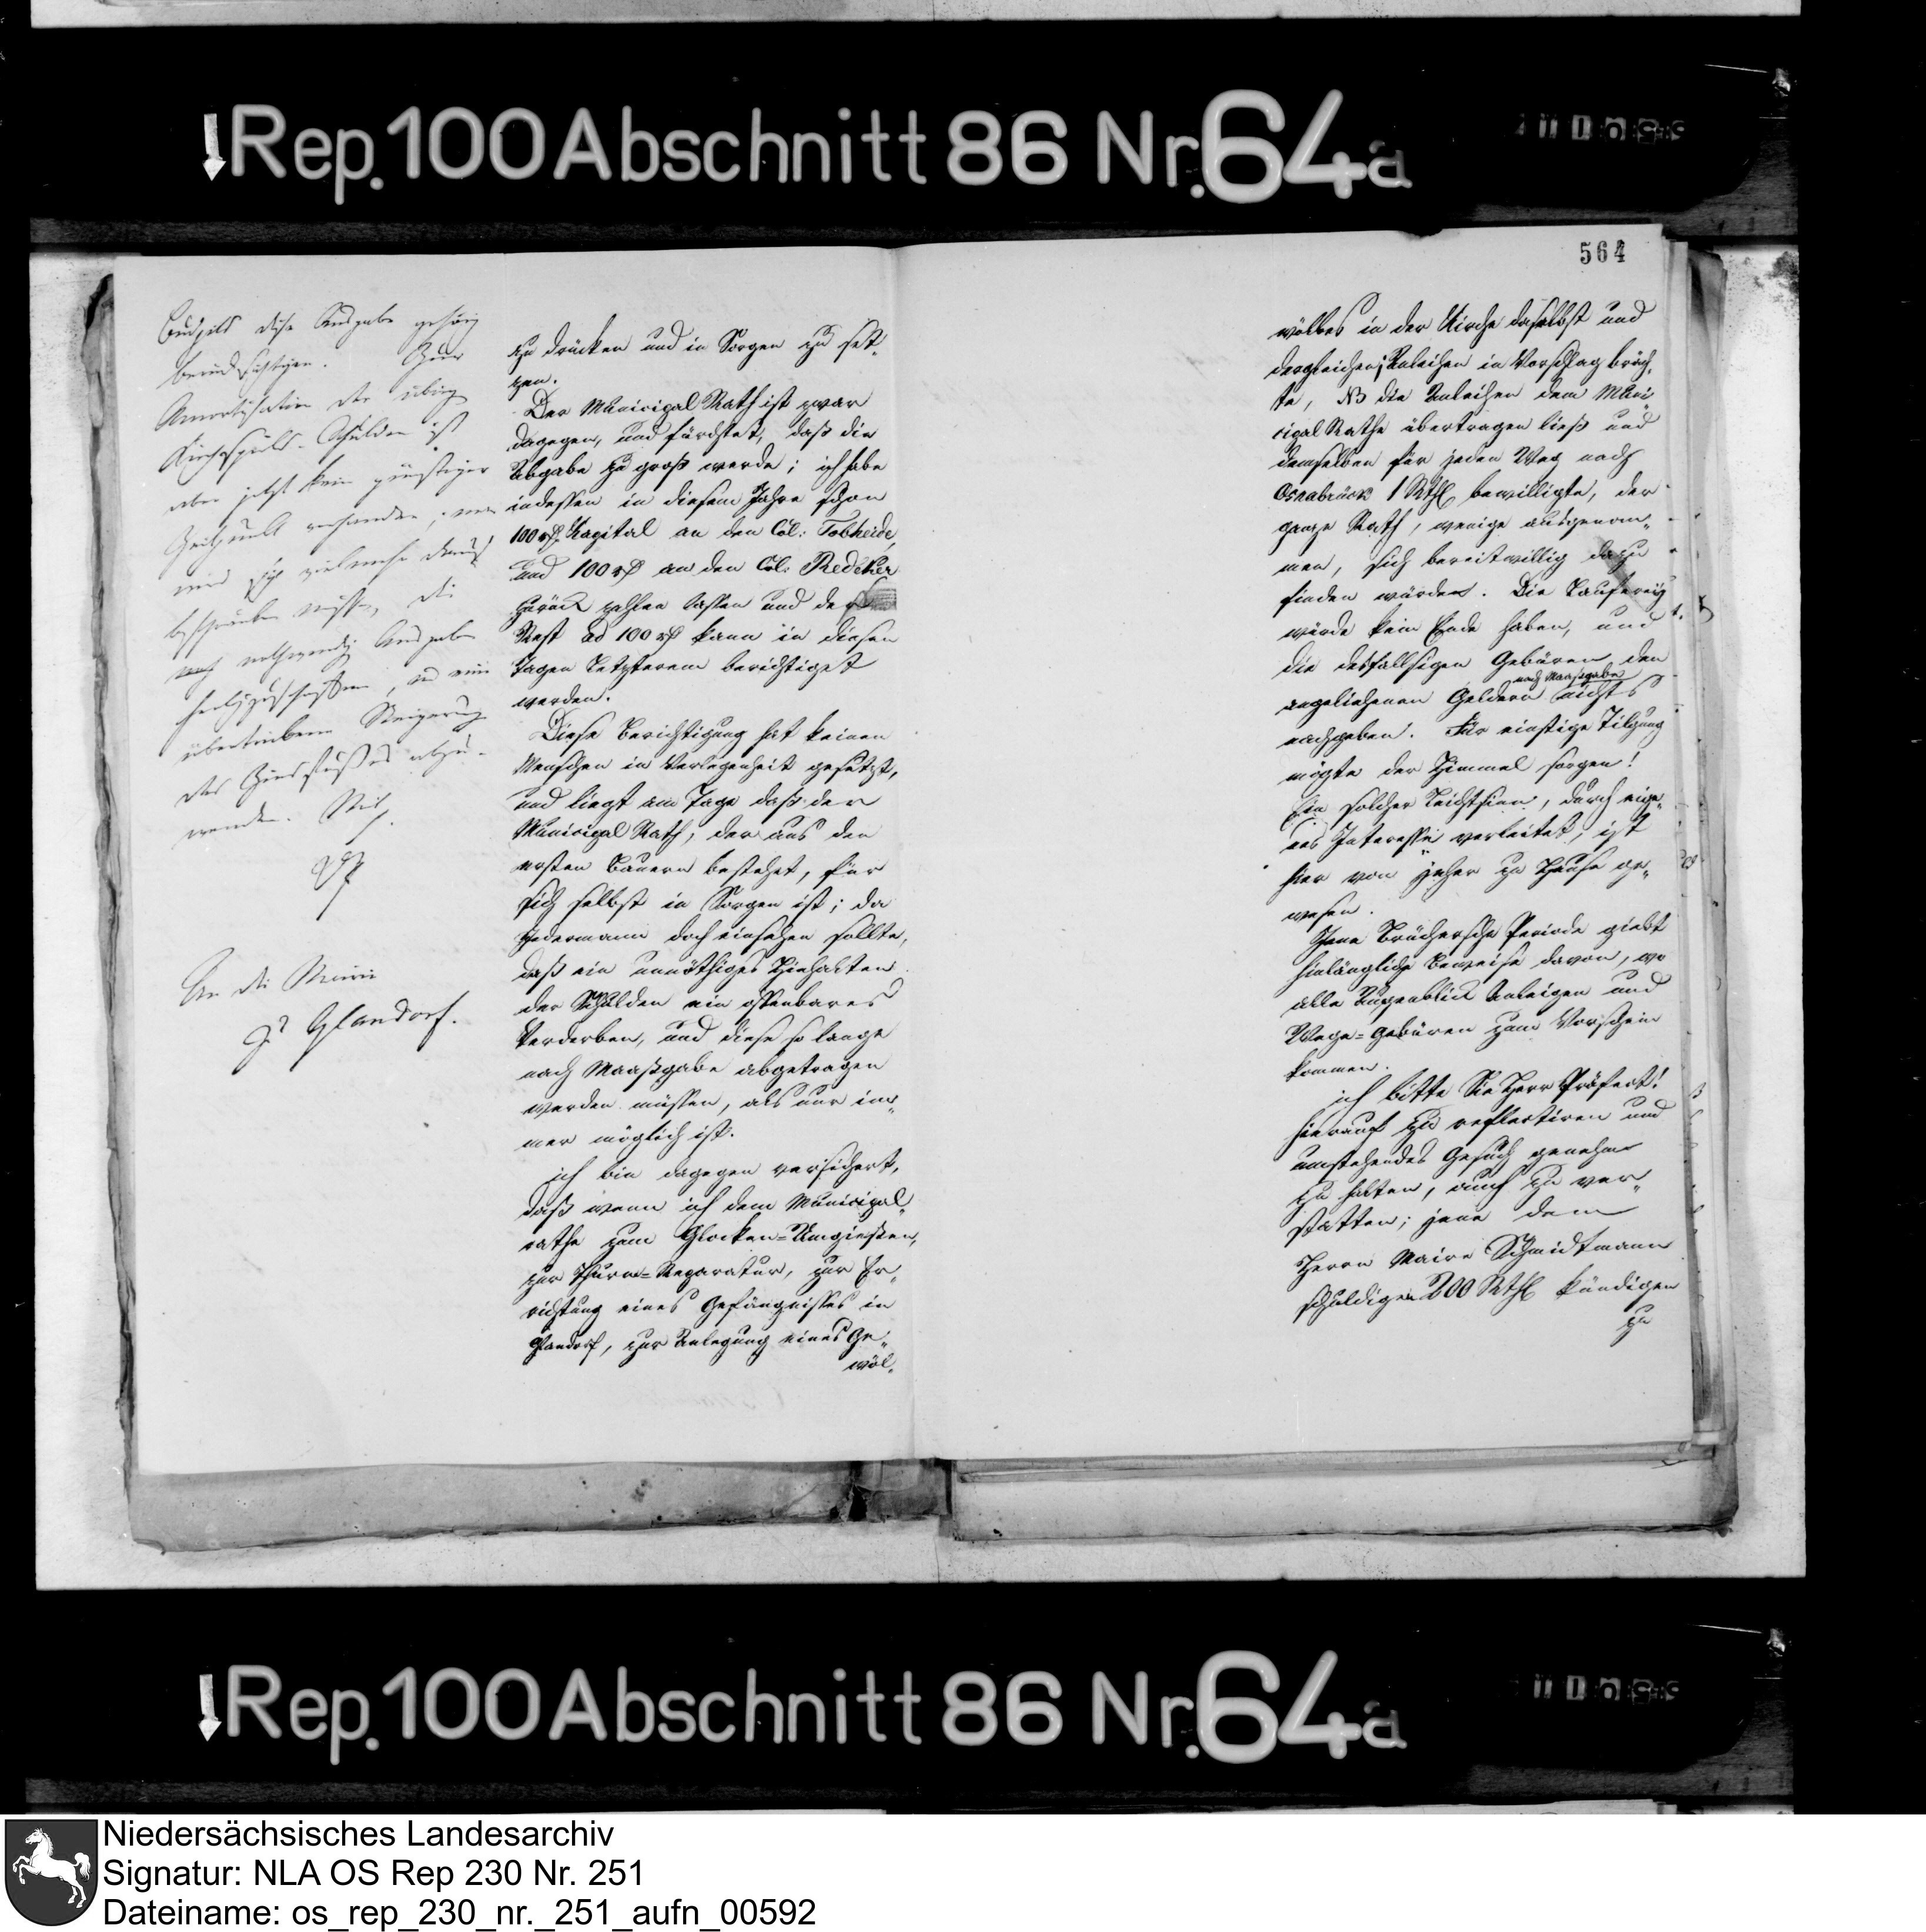 Rep. 100 Abschnitt 86 Nr. 64a
564
Budgets diese Ausgabe gehörig
berücksichtigen. Zur
Amortisation der übrigen
Kirchspiels-Schulden ist
aber jetzt kein günstiger
Zeitpunkt vorhanden; man
wird sich vielmehr darauf
beschränken müssen, die
nothwendig Ausgaben
herbeizuschaffen, und eine
übertriebene Steigerung
des Zinsfußes abzu-
wenden.
An den Maire
zu Glandorf.
zu drücken und in Sorgen zu set-
zen.
Der Municipal Rath ist zwar
dagegen, und fürchtet, daß die
Abgabe zu groß werde; ich habe
indessen in diesem Jahre schon
100 rthl Kapital an den Col: Tobheide,
und 100 rthl an den Col: Redeker
zurück zahlen lassen und der
Rest ad 100 rthl kann in diesen
Tagen Letzterem berichtiget
werden.
Diese Berichtigung hat keinen
Menschen in Verlegenheit gesetzt,
und liegt am Tage daß der
Municipal Rath, der aus den
ersten Bauern bestehet, für
sich selbst in Sorgen ist; da
Jedermann doch einsehen sollte,
daß ein unnöthiges Hinhalten
der Schulden ein offenbares
Verderben, und diese so lange
nach Maaßgabe abgetragen
werden müssen, als nur im-
mer möglich ist.
ich bin dagegen versichert,
daß wenn ich dem Municipal-
rathe zum Glocken-Umgießen,
zur Thurm-Reparatur, zur Er-
richtung eines Gefängnisses in
Glandorf, zur Anlegung eines Ge-
wöl-
wölbes in der Kirche daselbst und
dergleichen; Anleihen in Vorschlag bräch-
te, NB die Anleihen dem Muni
cipal Rathe übertragen ließ und
demselben für jeden Weg nach
Osnabrück 1 Rthl bewilligte, der
ganze Rath, wenige ausgenom-
men, sich bereitwillig dazu
finden würden. Die Lauferey
würde kein Ende haben, und
die desfallsigen Gebüren den
nach Maaßgabe
angeliehenen Geldern nichts
nachgeben. Für einstige Tilgung
mögte der Himmel sorgen!
Ein solcher Leichtsinn, durch eige-
nes Interesse verleitet, ist
hier von jeher zu Hause ge-
wesen.
Jene Brüchersche Periode giebt
hinlänglige Beweise davon, wo
alle Augenblick Anleigen und
Wege-Gebüren zum Vorschein
kommen.
ich bitte Sie Herr Präfect!
hierauf zu reflectiren und
umstehendes Gesuch genehm
zu halten, auch zu ver-
statten; jene dem
Herrn Maire Schmidtmann
schuldigen 200 Rthl kündigen
zu
Rep. 100 Abschnitt 86 Nr. 64a
Niedersächsisches Landesarchiv
Signatur: NLA OS Rep 230 Nr. 251
Dateiname: os_rep_230_nr._251_aufn_00592